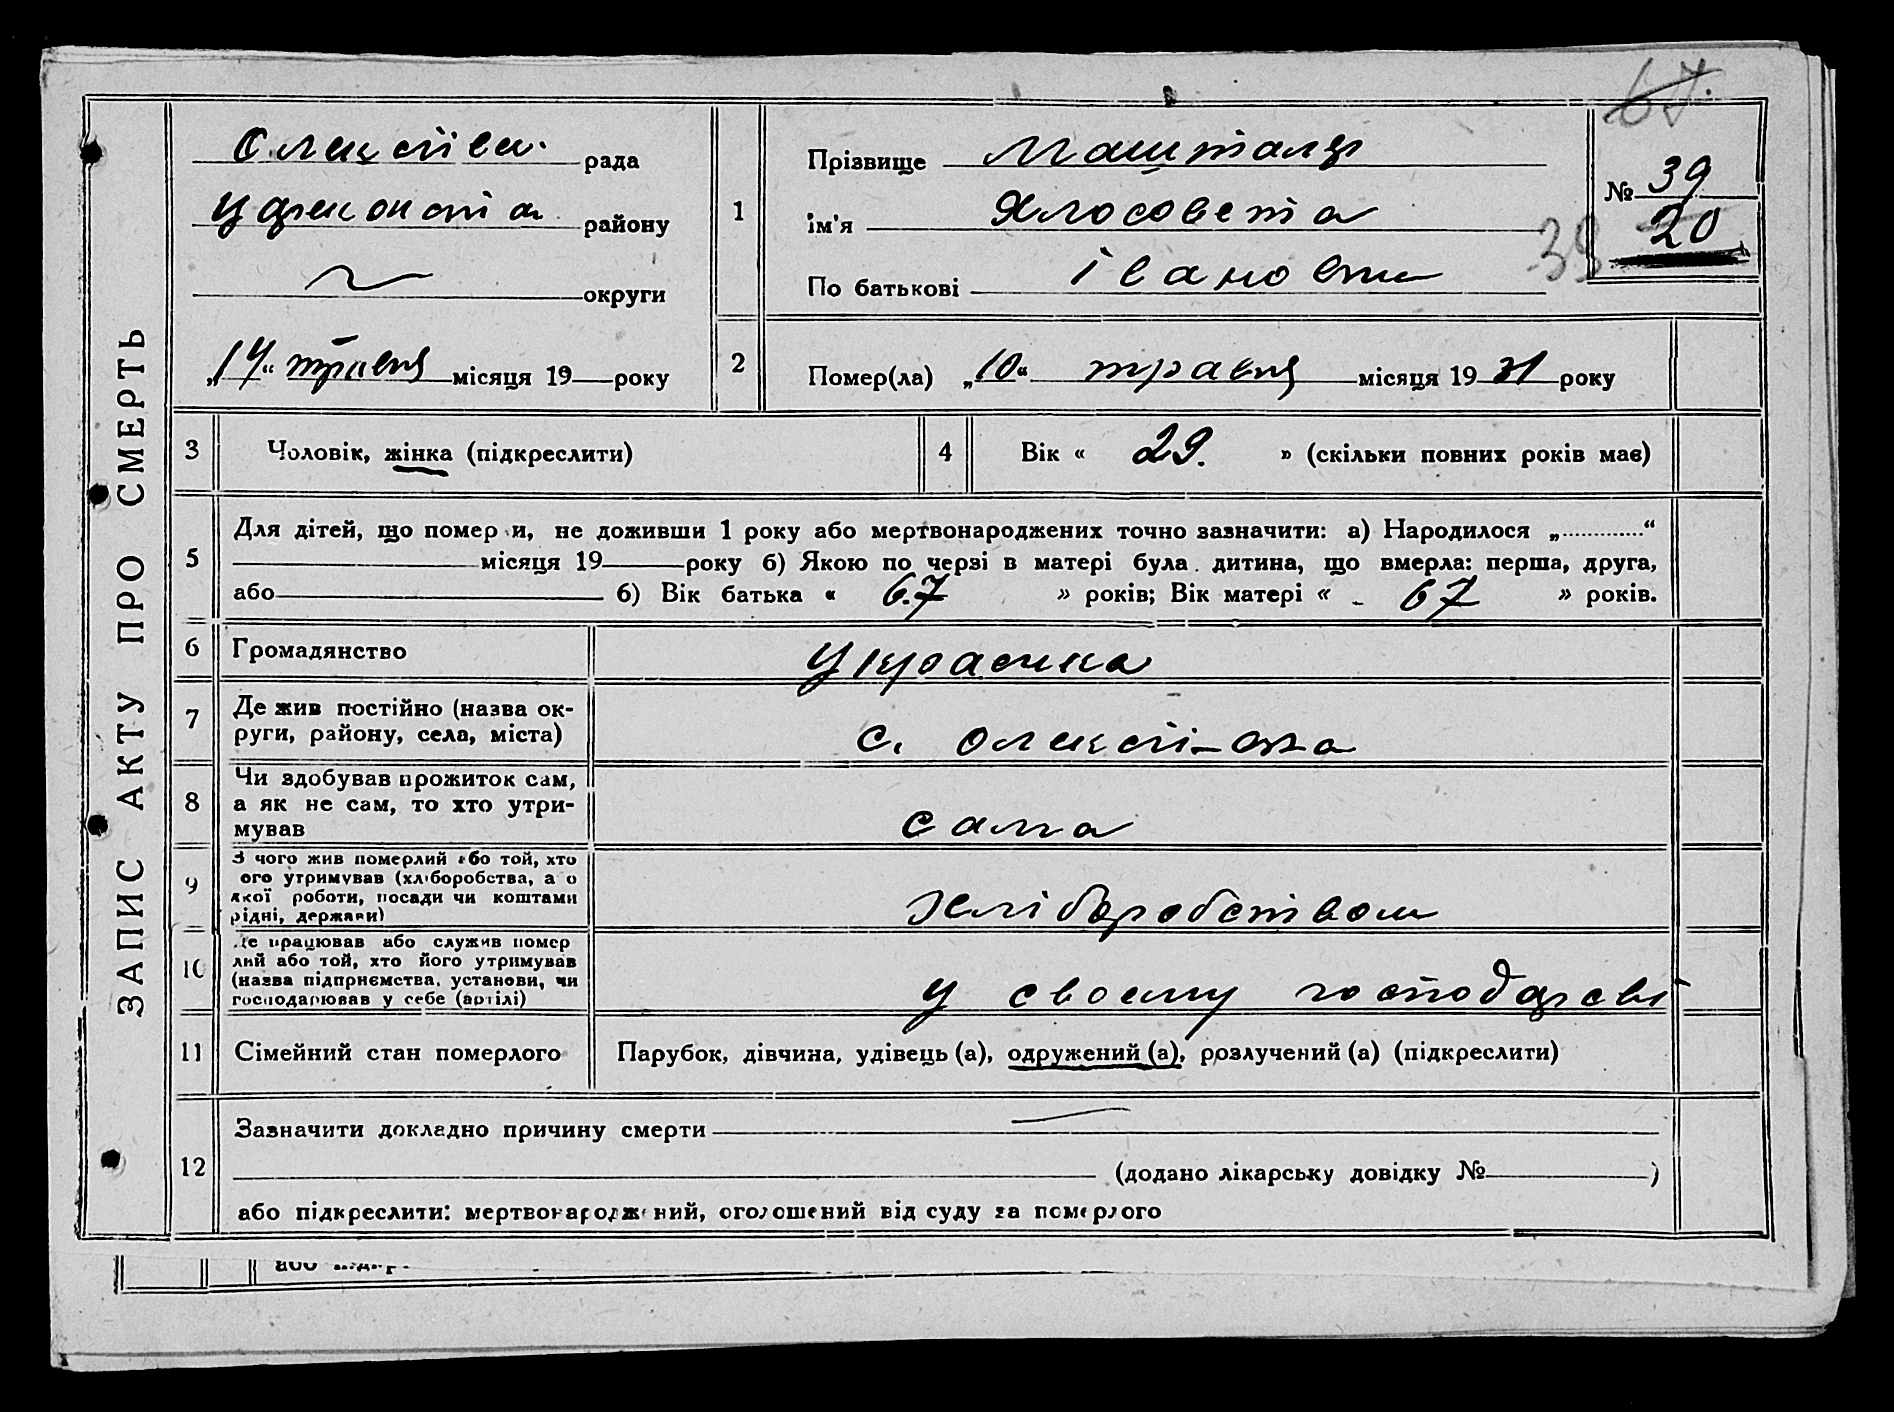 67.
ЗАПИС АКТУ ПРО СМЕРТЬ
Олексіївс. рада
району
округи
„14“ травня місяця 19 року
1
Прізвище Машталяр
Ім'я Ялосовета
По батькові Івановна
№ 39
20
39
2
Помер(ла) „10“ травня місяця 19 31 року
3 Чоловік, жінка (підкреслити)
4 Вік « 29. » (скільки повних років має)
5
Для дітей, що помер и, не доживши 1 року або мертвонароджених точно зазначити: а) Народилося „............“
місяця 19 року б) Якою по черзі в матері була дитина, що вмерла: перша, друга,
або б) Вік батька « 67 » років; Вік матері « 67 » років.
6 Громадянство Украєнка
7 Де жив постійно (назва ок-
руги, району, села, міста) с. Олексіївка
8 Чи здобував прожиток сам,
а як не сам, то хто утри-
мував сама
9 З чого жив померлий або той, хто
ого утримував (хліборобства, а о
якої роботи, посади чи коштами
рідні, держави) Хліборобством
10 Де працював або служив помер
лий або той, хто його утримував
(назва підприємства, установи, чи
господарював у себе (артілі) У своєму господарстві
11 Сімейний стан померлого Парубок, дівчина, удівець (а), одружений (а), розлучений (а) (підкреслити)
12
Зазначити докладно причину смерти
(додано лікарську довідку № )
або підкреслити: мертвонароджений, оголошений від суду за померлого